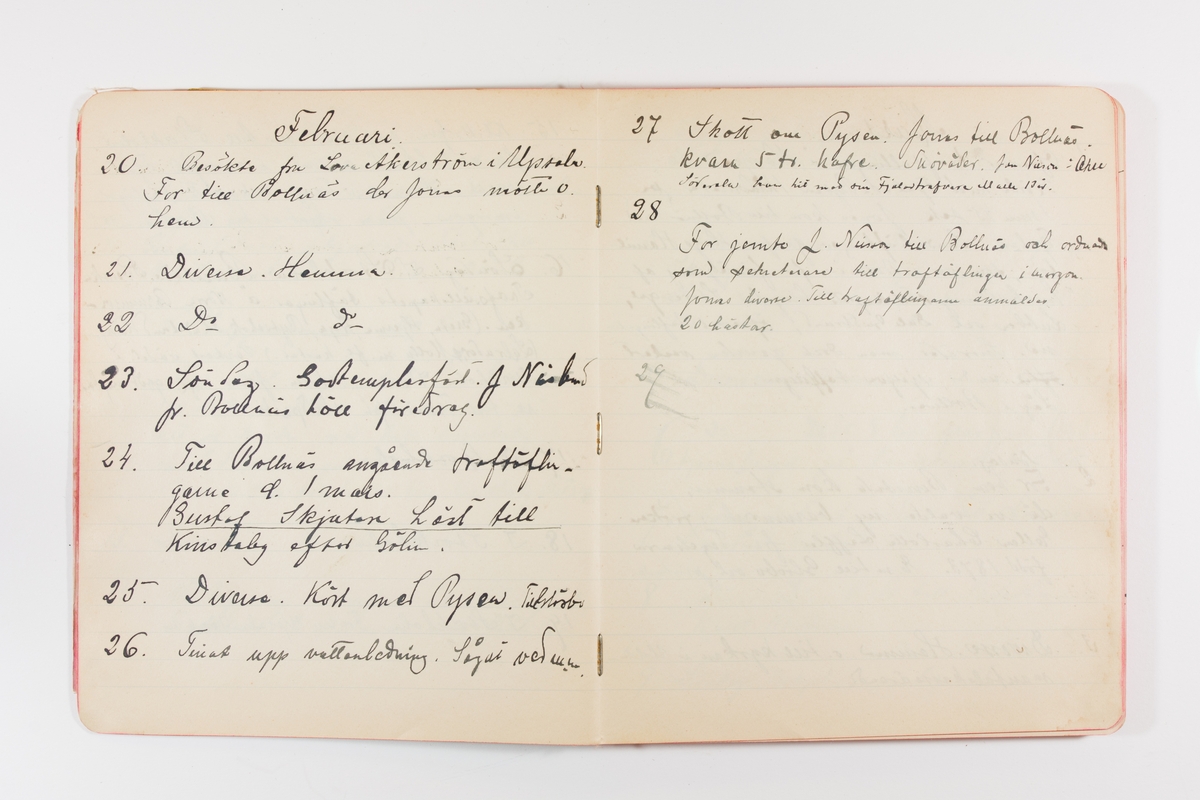 Februari.
20. Besökte frn Lova Åkerström i Upsala.
For till Bollnäs der Jonas mötte o.
hem.
21. Diverse. Hemma.
22 Do do
23. Söndag. Godtemplarfäst. J
fr. Bollnäs höll föredrag.
24. Till Bollnäs angående traftäflin-
garne d. 1 mars.
Gustaf Skjutsa häst till
Kinstaby efter Gölin.
25. Diverse. Kört med Pysen.
26. Tinat upp vattenledning. Sågat ved m.m.
27 Skott om Pysen. Jonas till Bollnäs.
kvarn 5 tr. hafre. Snöväder. från
Söderala kom hit med sin
28
For jemte J. Nilsson till Bollnäs och ordnade
som sekreterare till traftäflingen i morgon.
Jonas diverse. Till traftäflingarne anmäldes
20 hästar.
29